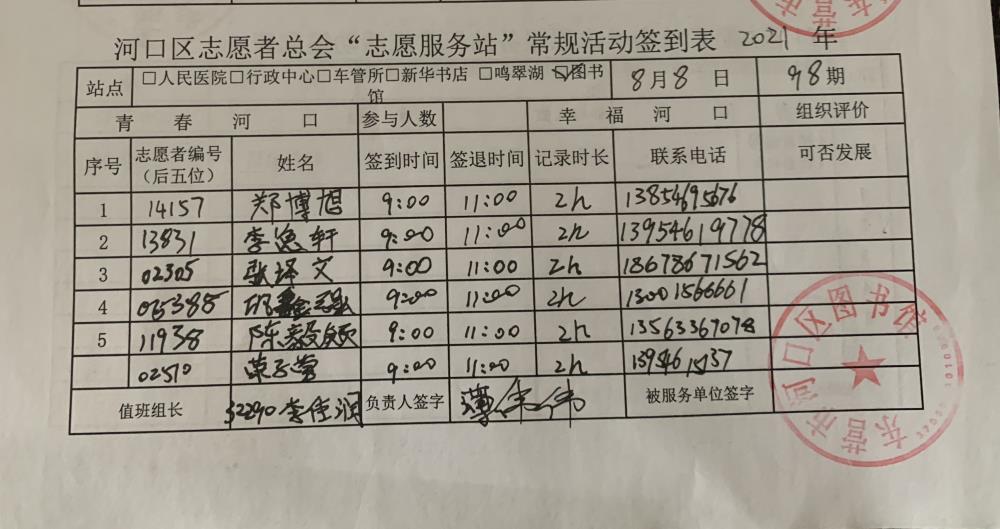 河口区志愿者总会“志愿服务站”常规活动签到表 2021 年
站点 □人民医院□行政中心□车管所□新华书店 □鸣翠湖 ☑图书馆 8月8日 98期
青春河口 参与人数 幸福河口 组织评价
序号 志愿者编号（后五位） 姓名 签到时间 签退时间 记录时长 联系电话 可否发展
1 14157 郑博旭 9:00 11:00 2h 13854695676
2 13831 李逸轩 9:00 11:00 2h 13954619778
3 02305 张译文 9:00 11:00 2h 18678671562
4 05388 9:00 11:00 2h 13001566661
5 11938 陈毅 9:00 11:00 2h 13563367078
02510 9:00 11:00 2h
值班组长 32290 李佳润 负责人签字 薄伟伟 被服务单位签字
东营市河口区图书馆
东营市